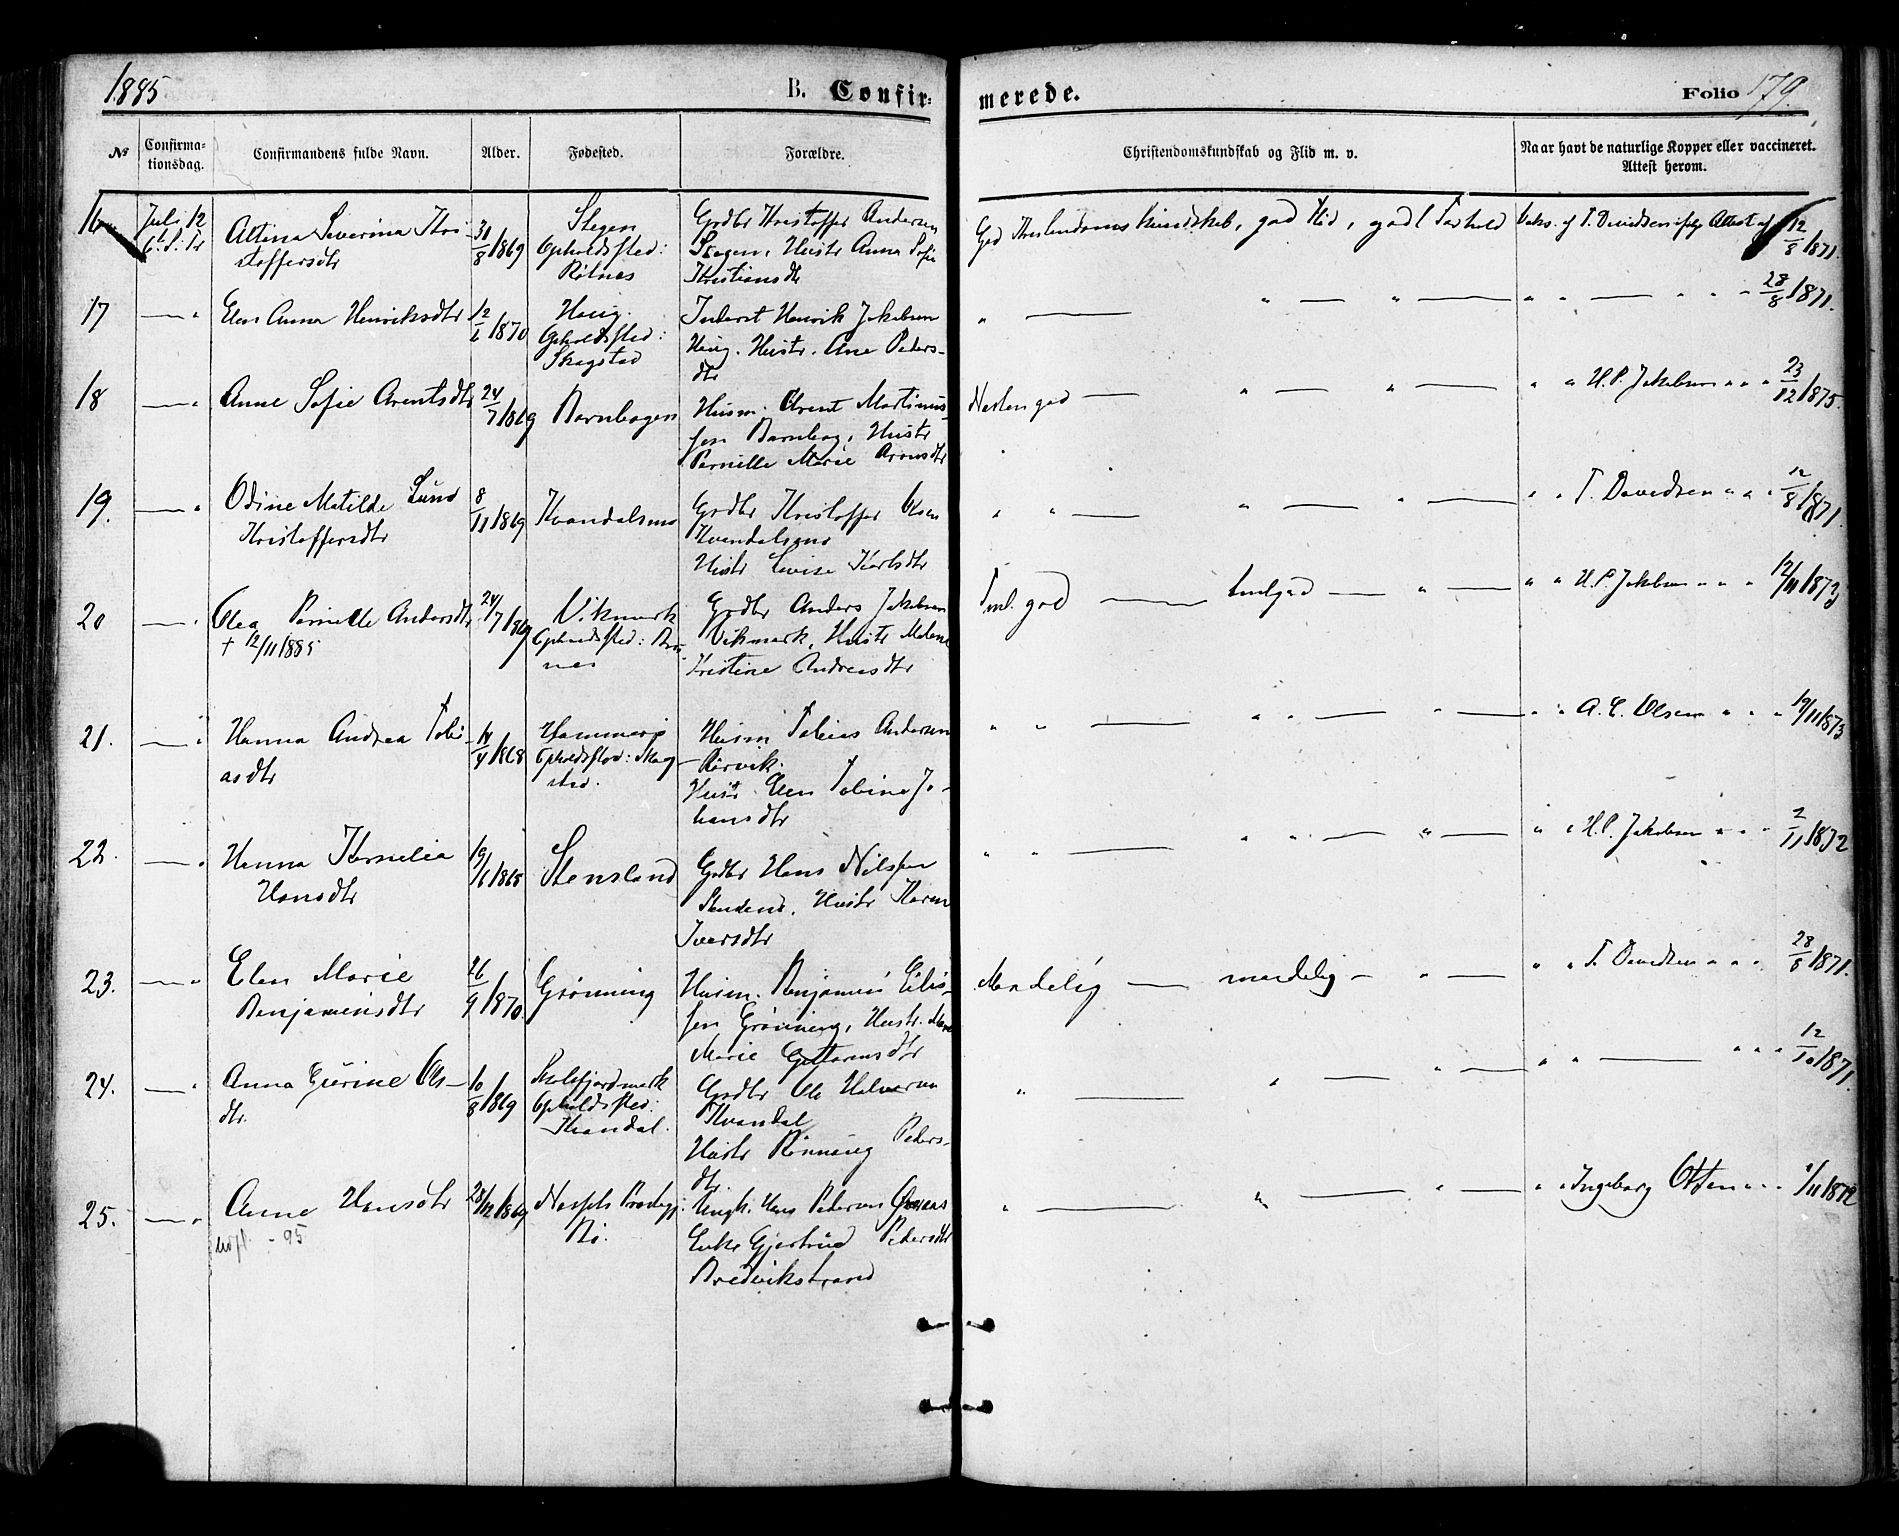 1885
B. Confir-
merede.
Folio 179.
No
Confirma-
tionsdag.
Confirmandens fulde Navn.
Alder.
Fødested.
Forældre.
Christendomskundskab og Flid m. v.
Naar havt de naturlige Kopper eller vaccineret.
Attest herom.
16
Juli 12
6. S. Tr
Altina Severina Kri-
stoffersdtr
31/8 1869
Stegen
Opholdssted:
Rølnes
Grdbr Kristoffer Andersen
Stegen, Hustr Anna Sofie
Kristiansdtr
God Kristendoms Kundskab, god Flid, god Forhold
Vaks. af T. Davidsen ifølg Attest af 12/8 1871.
17
— "
Elen Anna Henriksdtr
12/6 1870
Haug.
Opholdssted:
Skagstad
Inderst Henrik Jakobsen
Haug. Hustr. Ane Peders-
dtr
" — " — " —
" " — " " " 28/8 1871.
18
— "
Anne Sofie Arentsdtr
24/7 1869
Bornhagen
Husm. Arent Martinus-
sen Bornhag, Hustr
Pernille Marie Aronsdtr
Næsten god — " — " —
" " H.P. Jakobsen " " " 23/12 1875.
19.
— "
Odine Matilde Lund
Kristoffersdtr
8/11 1869
Kvandalsmo
Grdbr Kristoffer Olsen
Kvandalsmo
Hustr Lovise Karlsdtr
" " — " — " —
" " T. Davidsen " " " 12/8 1871.
20
— "
Olea Pernille Andersdtr
+ 12/11 1885
24/7 1869
Vikmark
Opholdssted:
nes
Grdbr Anders Jakobsen
Vikmark, Hustr Malene
Kristine Andreasdtr
Tml. god — tmlgod — " —
" " H.P. Jakobsen " " " 12/11 1873
21.
— "
Hanna Andrea Tobi-
asdtr
14/4 1868
Hammerø
Opholdssted: Skag-
stad.
Husm Tobias Andersen
Rørvik.
Hustr Elen Tobina Jo-
hansdtr
" " — " " — " —
" " A. E. Olsen " " " 19/11 1873
22.
— "
Hanna Kornelia
Hansdtr
19/6 1865
Stensland
Grdbr Hans Nilssen
Hustr Karen
Iversdtr
" " — " " — " —
" " H.P. Jakobsen " " " 2/11 1872
23.
— "
Elen Marie
Benjaminsdtr
26/9 1870.
Grønning
Husm. Benjamin Elias-
sen Grønning, Hustr.
Marie Guttormsdtr
Maadelig — maadelig — " —
" " T. Davidsen " " " 28/8 1871.
24.
— "
Anna Gurine Ols-
dtr.
10/8 1869
Skotsfjordmark
Opholdssted:
Kvandal.
Grdbr Ole Halvorsen
Kvandal
Hustr Rønnaug Peders-
dtr
" — " — " —
" " — " " " 12/10 1871.
25.
— "
Anne Hansdtr
- 95
28/12 1869
Næsset Præstegj:
Bø.
Ungk. Hans Pedersen
Enke Gjertrud Pedersdtr
Bredvikstrand
" — " — " —
" " Ingeborg Ottsen " " 1/11 1872